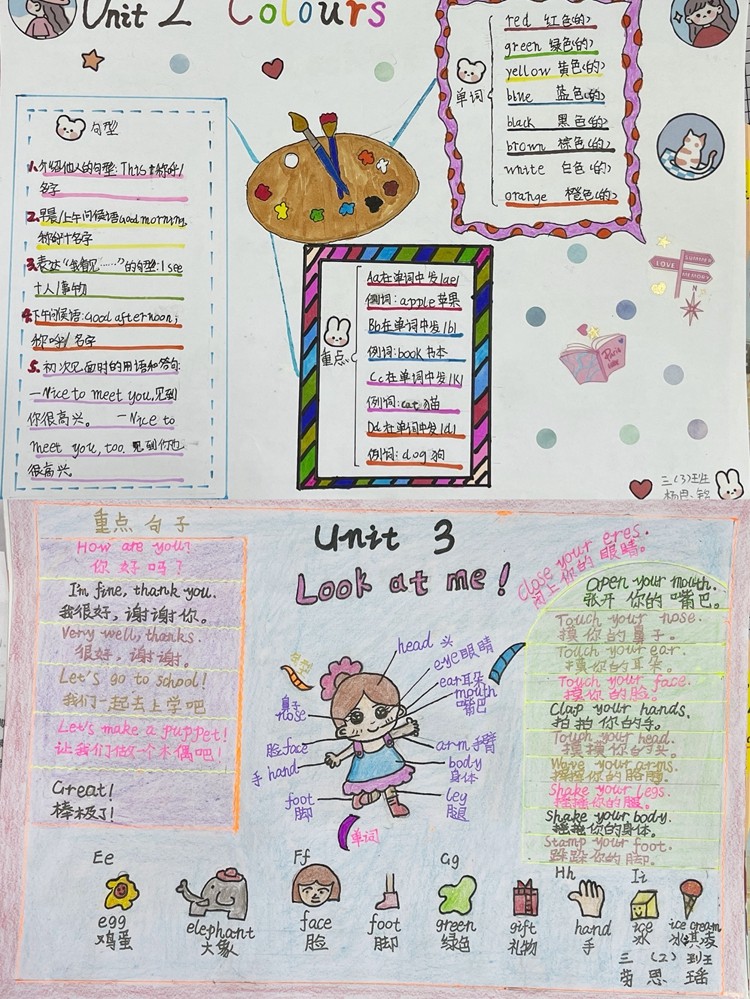 Unit 2 Colours
句型
1.介绍他人的句型: This is 称呼/
名字
2.早晨/上午问候语Good morning,
称呼十名字
3.表达“我看见……”的句型: I see
十人/事物
4.下午问候语: Good afternoon,
称呼/名字
5.初次见面时的用语和答句:
—Nice to meet you,见到
你很高兴。 —Nice to
meet you, too. 见到你也
很高兴
单词
red 红色(的)
green 绿色(的)
yellow 黄色(的)
blue 蓝色(的)
black 黑色(的)
brown 棕色(的)
white 白色(的)
orange 橙色(的)
重点
Aa在单词中发/ae/
例词: apple苹果
Bb在单词中发/b/
例词: book 书本
Cc在单词中发/k/
例词: cat 猫
Dd在单词中发/d/
例词: dog 狗
LOVE
SUMMER
MEMORY
N
Paris
三(3)班
杨思
重点句子
How are you?
你好吗?
I'm fine, thank you.
我很好,谢谢你。
Very well, thanks.
很好,谢谢。
Let's go to school!
我们一起去上学吧
Let's make a puppet!
让我们做一个木偶吧!
Great!
棒极了!
Unit 3
Look at me!
head 头
eye 眼睛
ear 耳朵
mouth
嘴巴
鼻子
nose
脸 face
手 hand
arm 手臂
body
身体
foot
脚
leg
腿
单词
close your eres.
闭上你的眼睛。
Open your mouth.
张开你的嘴巴。
Touch your nose.
摸你的鼻子。
Touch your ear.
摸你的耳朵。
Touch your face.
摸你的脸。
Clap your hands.
拍拍你的手。
Touch your head.
摸摸你的头。
Wave your arms.
挥挥你的胳膊。
Shake your legs.
摇摇你的腿。
Shake your body.
摇摇你的身体。
Stamp your foot.
跺跺你的脚。
Ee
Ff
Gg
Hh
Ii
egg
鸡蛋
elephant
大象
face
脸
foot
脚
green
绿色
gift
礼物
hand
手
ice
冰
ice cream
冰淇凌
三(2)班
思瑶